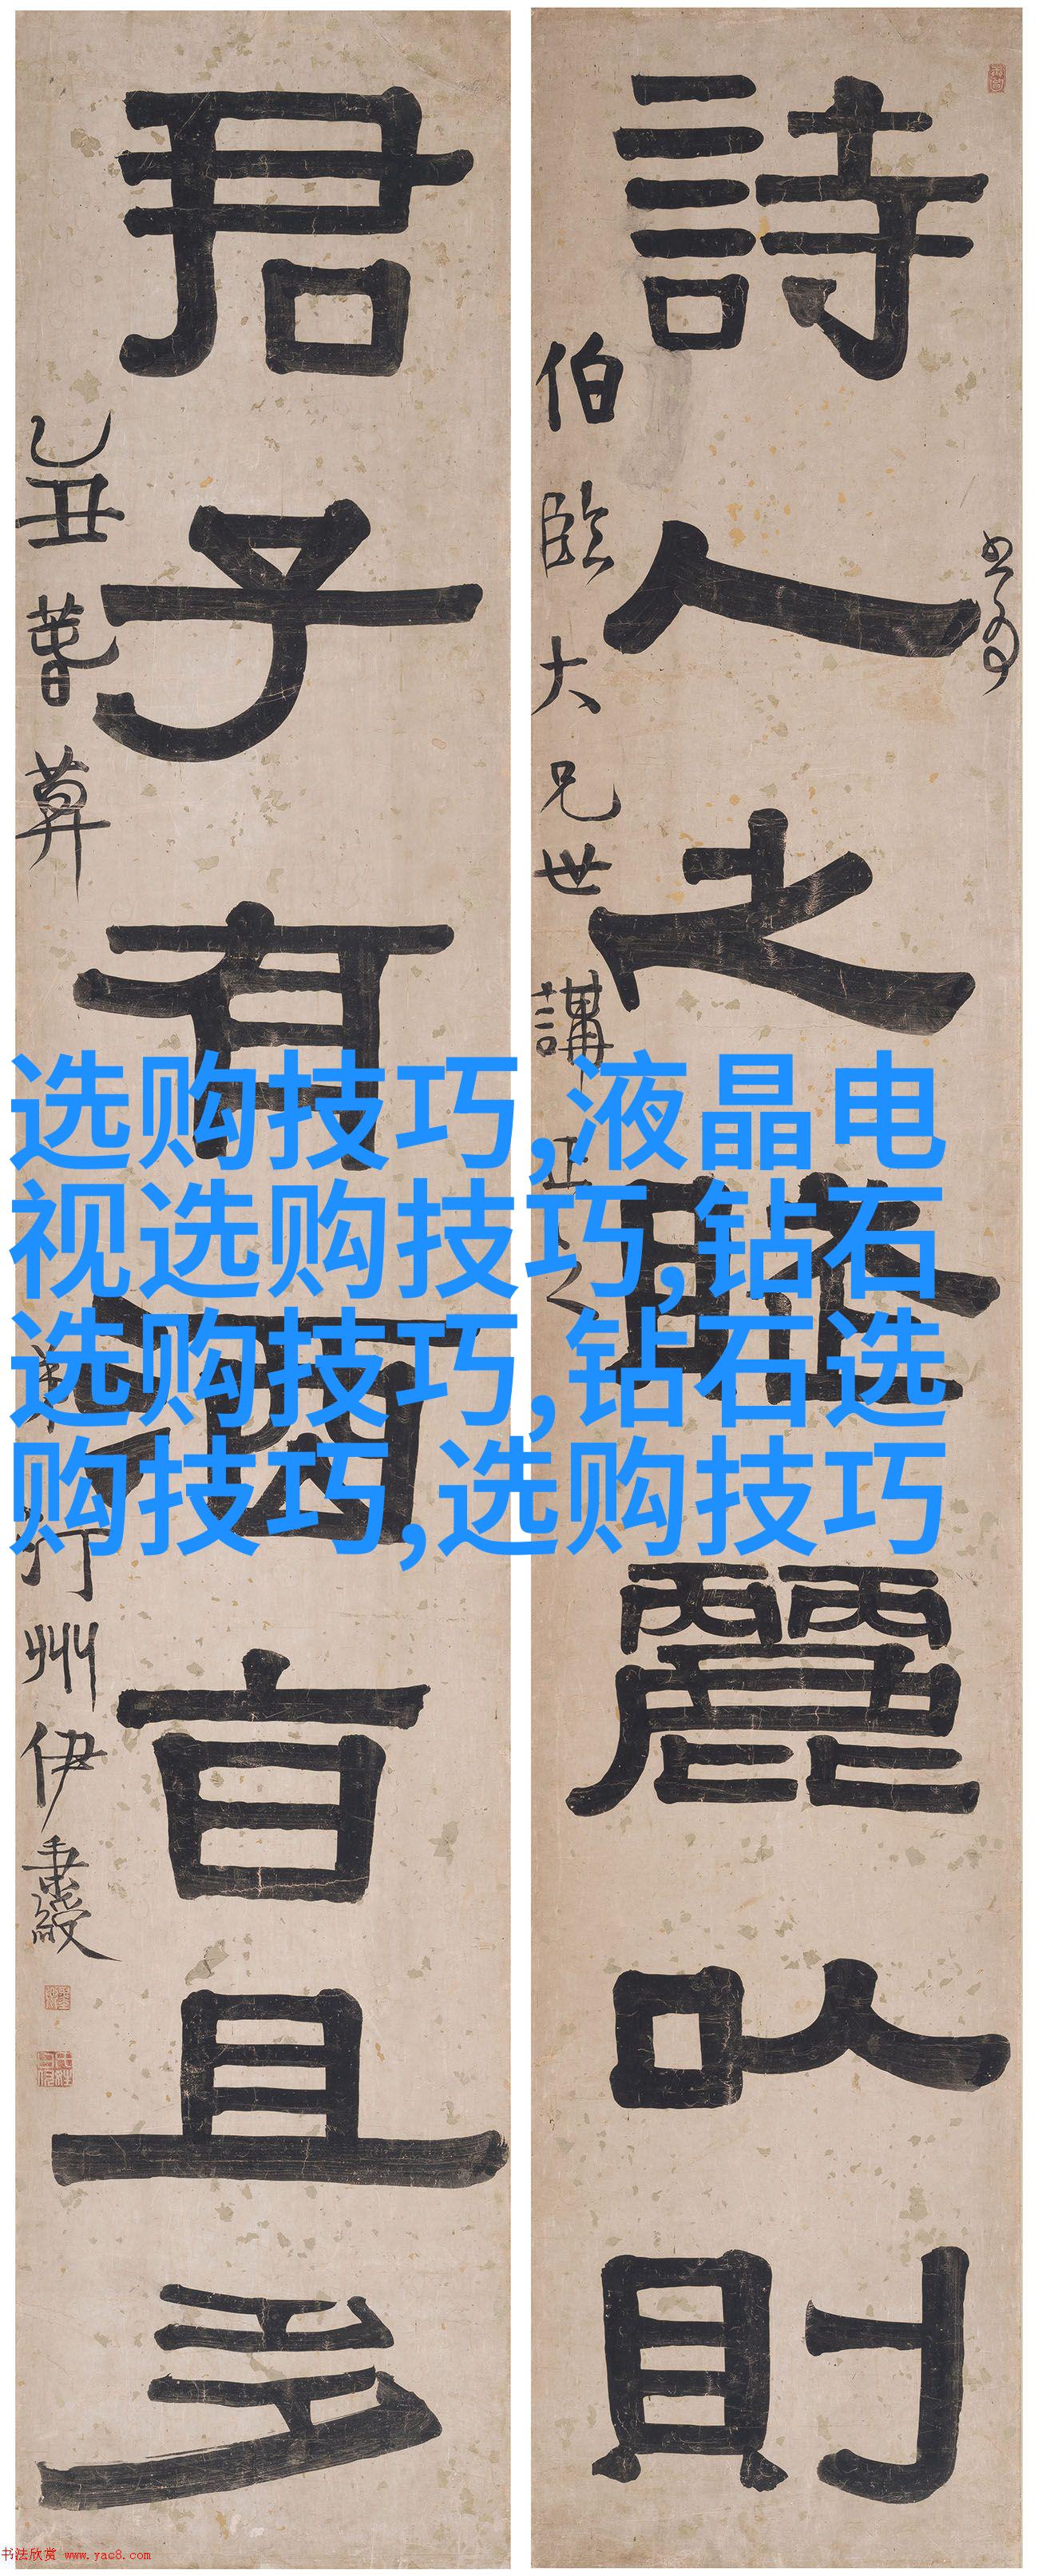 書為
詩人之賦麗以則
伯臨大兄世講正之
君子有酒旨且多
乙丑
汀州伊秉綬
选购技巧,液晶电
视选购技巧,钻石
选购技巧,钻石选
购技巧,选购技巧
书法欣赏 www.yac8.com